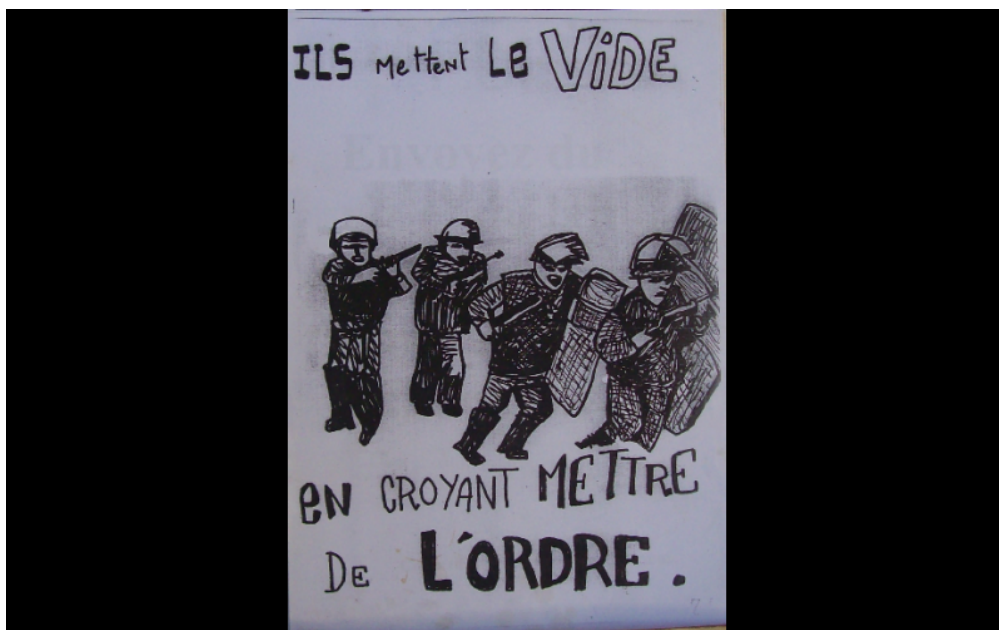 ILS Mettent Le ViDE
Envoyez du
eN CROYANT METTRE
DE L'ORDRE.